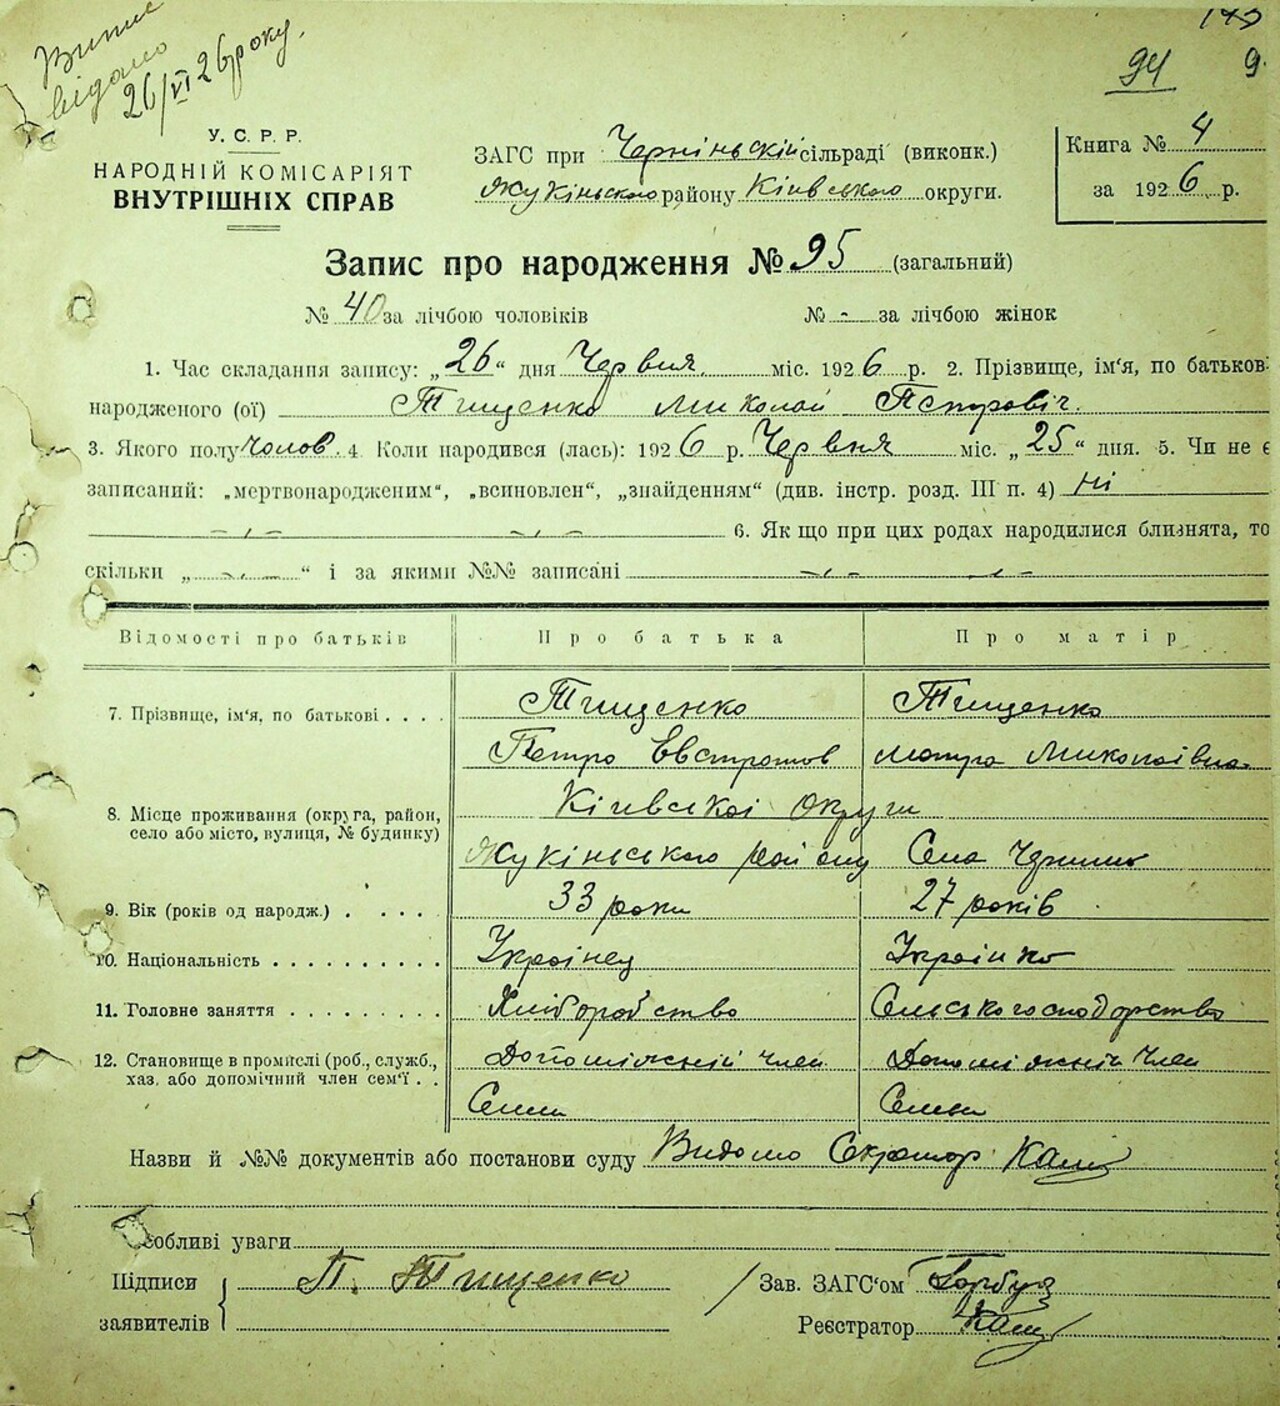 Випис
видано
26/VI 26 року.
143
94 9.
У. С. Р. Р.
НАРОДНІЙ КОМІСАРІЯТ
ВНУТРІШНІХ СПРАВ
ЗАГС при Черніньскій сільраді (виконк.)
Жукіньского району Київського округи.
Книга № 4
за 1926 р.
Запис про народження № 95 (загальний)
№ 40 за лічбою чоловіків № - за лічбою жінок
1. Час складання запису: „26“ дня Червня. міс. 1926 р. 2. Прізвище, ім'я, по батькові
народженого (ої) Тищенко Миколай Петровіч.
3. Якого полу чолов. 4. Коли народився (лась): 1926 р. Червня міс. „25“ дня. 5. Чи не є
записаний: „мертвонародженим“, „всиновлен“, „знайденням“ (див. інстр. розд. III п. 4) ні
6. Як що при цих родах народилися близнята, то
скільки „ “ і за якими №№ записані
Відомості про батьків Про батька Про матір
7. Прізвище, ім'я, по батькові . . . . Тищенко Тищенко
Петро Евстратов мотря Миколаівна
8. Місце проживання (округа, район, Київськоі Округи
село або місто, вулиця, № будинку)
Жукіньського району Села Чернинь
9. Вік (років од народж.) . . . . . 33 роки 27 років
10. Національність . . . . . . . . . . Украінец Украінка
11. Головне заняття . . . . . . . . . Хліборобство Сельськогосподорство
12. Становище в промислі (роб., служб., Допоміжній член Допоміжній член
хаз. або допомічний член сем'ї . . Семи Семьи
Назви й №№ документів або постанови суду Видомо Секротор
Особливі уваги
Підписи П. Тищенко Зав. ЗАГС'ом Гарбуз
заявителів Реєстратор